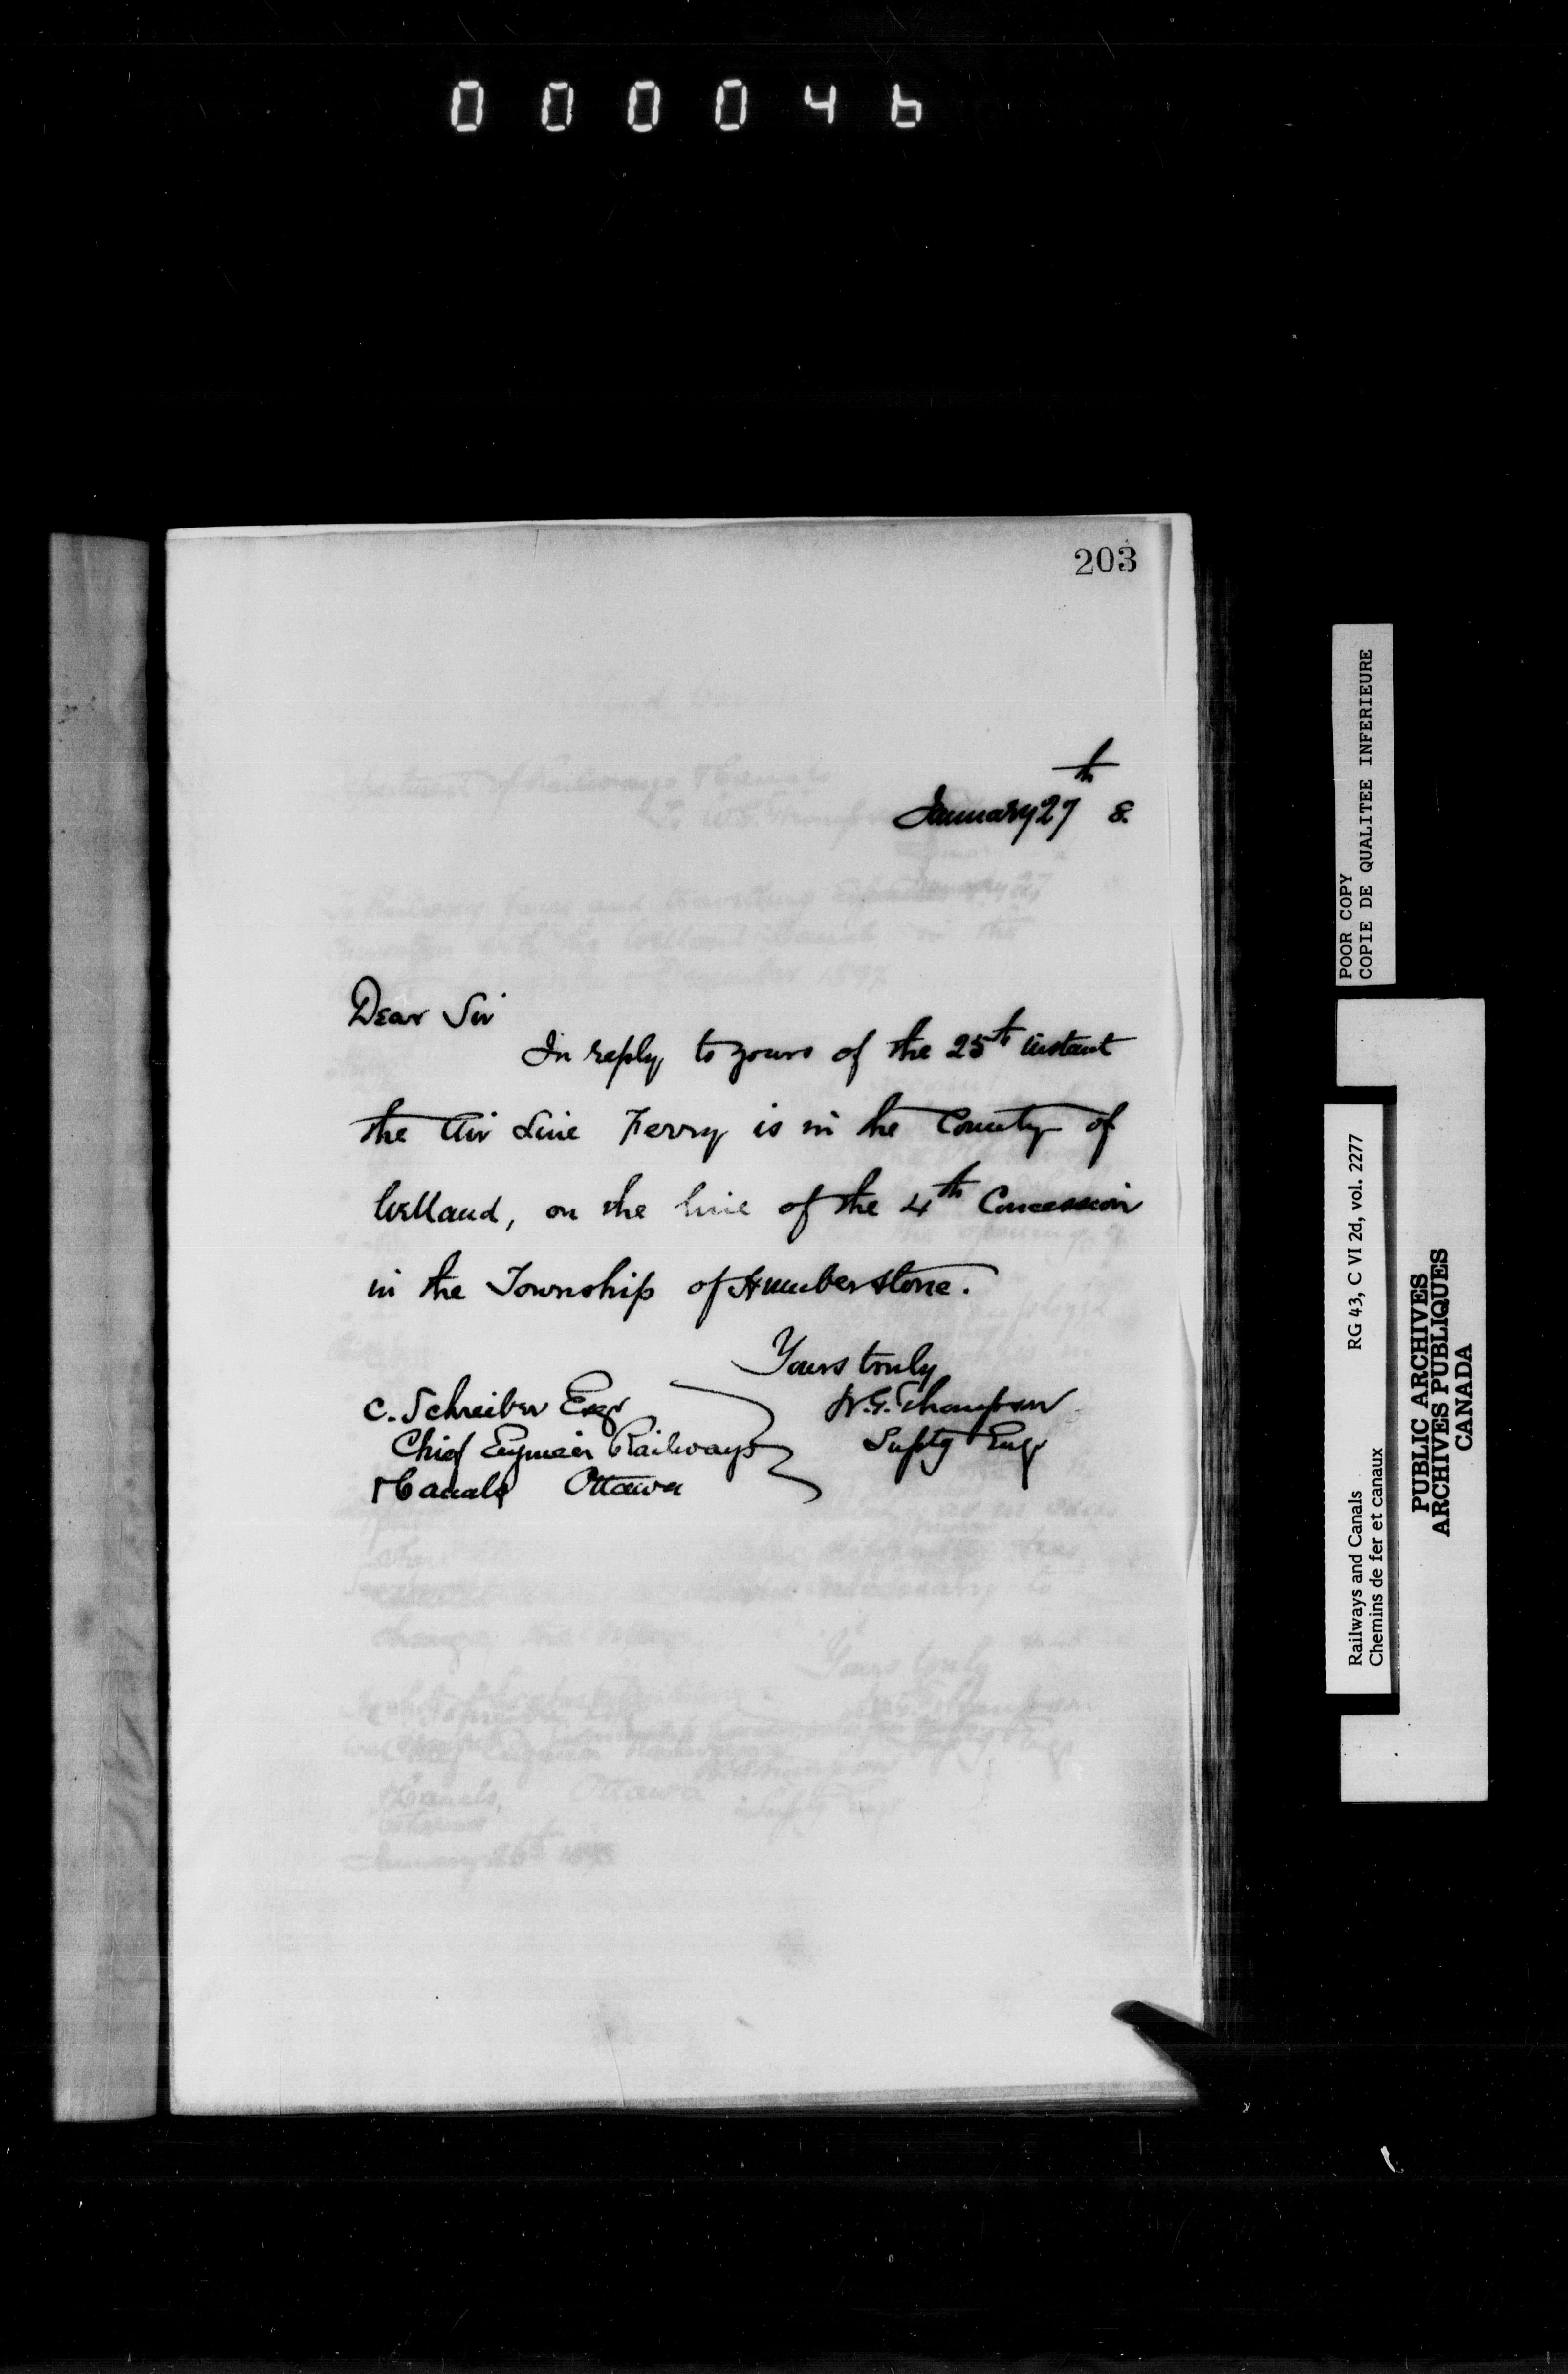 000046
203
January 27th 8.
Dear Sir
In reply to yours of the 25th instant
the Air Line Ferry is in the County of
Welland, on the line of the 4th Concession
in the Township of Humberstone.
Yours truly
W.G. Thompson
Suptg Engr
C. Schreiber Esqr
Chief Engineer Railways
& Canals Ottawa
POOR COPY
COPIE DE QUALITEE INFERIEURE
Railways and Canals RG 43, C VI 2d, vol. 2277
Chemins de fer et canaux
PUBLIC ARCHIVES
ARCHIVES PUBLIQUES
CANADA